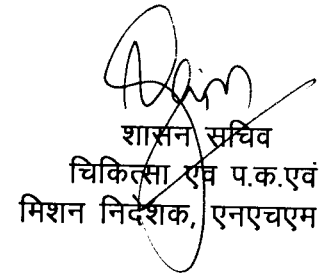 शासन सचिव
चिकित्सा एवं प.क.एवं
मिशन निदेशक, एनएचएम